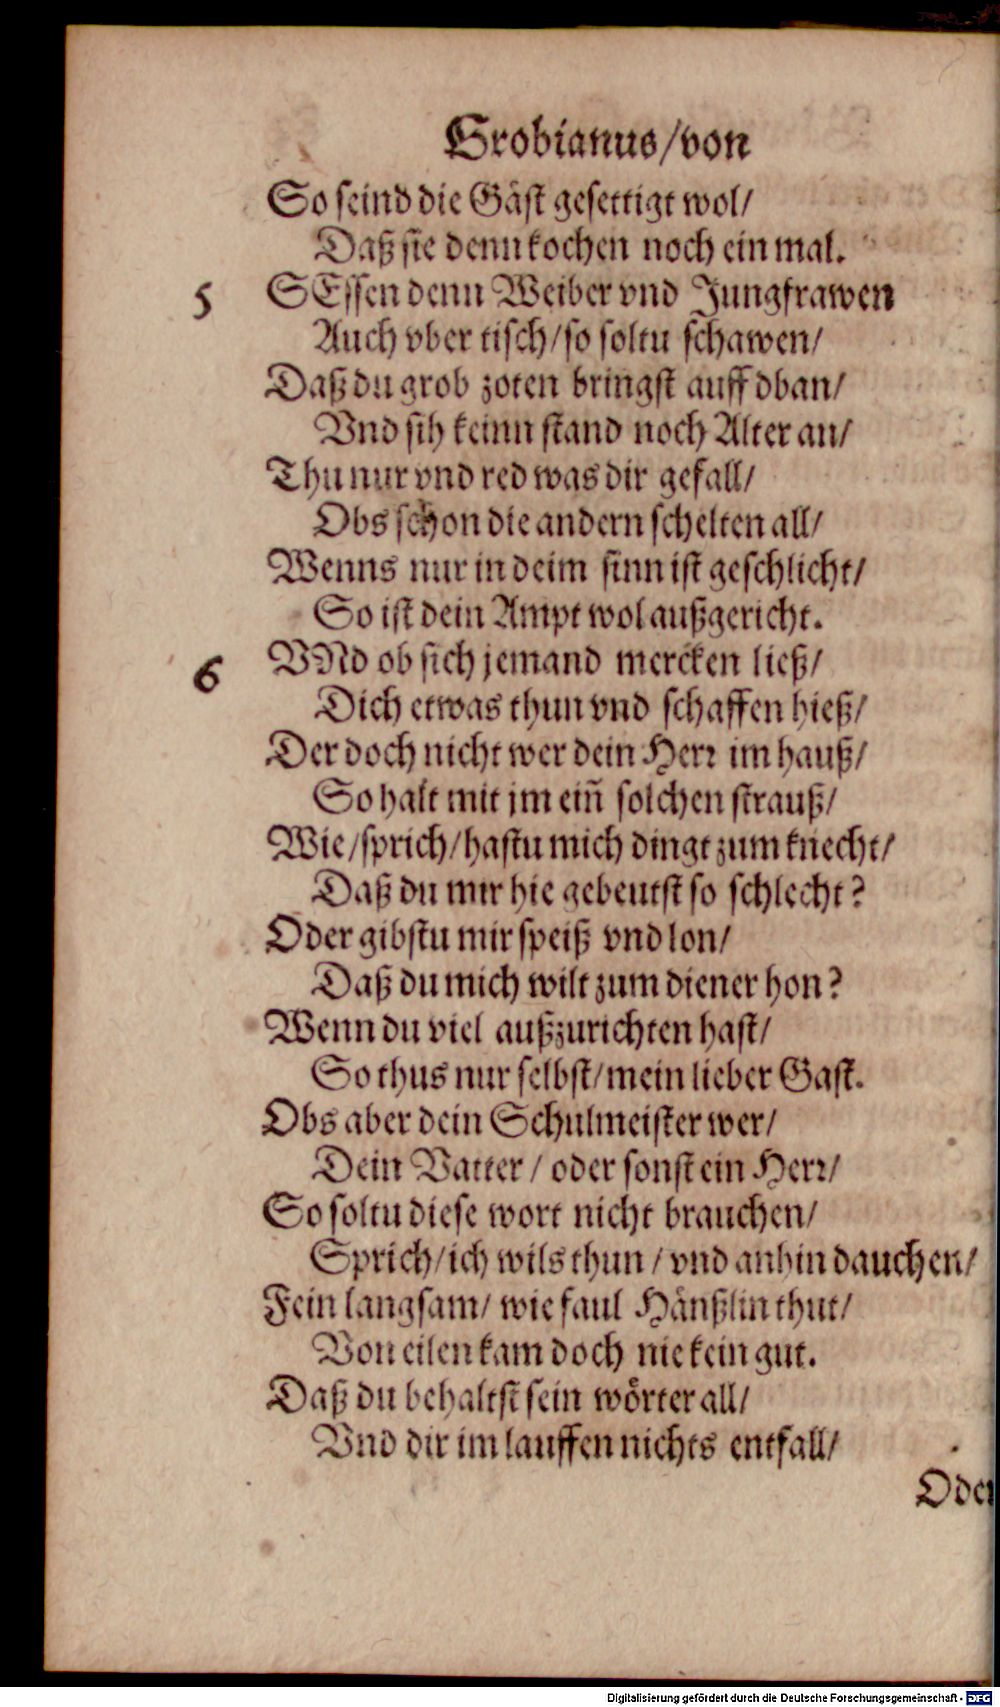 Grobianus/von
So seind die Gäst gesettigt wol/
Daß sie denn kochen noch ein mal.
5 SEssen denn Weiber vnd Jungfrawen
Auch vber tisch/so soltu schawen/
Daß du grob zoten bringst auff dban/
Vnd sih keinn stand noch Alter an/
Thu nur vnd red was dir gefall/
Obs schon die andern schelten all/
Wenns nur in deim sinn ist geschlicht/
So ist dein Ampt wol außgericht.
6 VNd ob sich jemand mercken ließ/
Dich etwas thun vnd schaffen hieß/
Der doch nicht wer dein Herr im hauß/
So halt mit jm ein̄ solchen strauß/
Wie/sprich/hastu mich dingt zum knecht/
Daß du mir hie gebeutst so schlecht?
Oder gibstu mir speiß vnd lon/
Daß du mich wilt zum diener hon?
Wenn du viel außzurichten hast/
So thus nur selbst/mein lieber Gast.
Obs aber dein Schulmeister wer/
Dein Vatter/ oder sonst ein Herr/
So soltu diese wort nicht brauchen/
Sprich/ich wils thun/ vnd anhin dauchen/
Fein langsam/ wie faul Hänßlin thut/
Von eilen kam doch nie kein gut.
Daß du behaltst sein wörter all/
Vnd dir im lauffen nichts entfall/
Oder
Digitalisierung gefördert durch die Deutsche Forschungsgemeinschaft - DFG